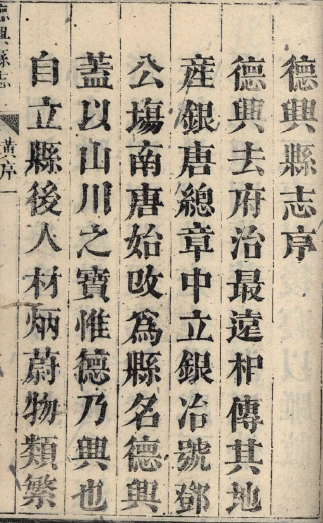 德興縣志序
德興去府治最遠相傳其地
産銀唐總章中立銀冶號鄧
公場南唐始改爲縣名德興
蓋以山川之寳惟德乃興也
自立縣後人材炳蔚物類繁
德興縣志
黃序
一